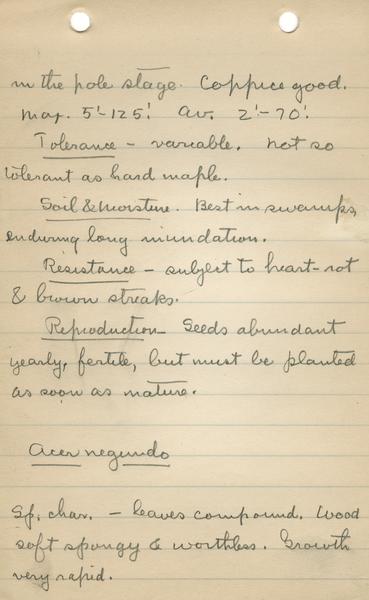 in the pole stage. Coppice good.
Max. 5'-125'. Av. 2'-70'.
Tolerance - variable. Not so
tolerant as hard maple.
Soil & Moisture. Best in swamps,
enduring long inundation.
Resistance - subject to heart-rot
& brown streaks.
Reproduction - Seeds abundant
yearly, fertile, but must be planted
as soon as mature.
Acer negundo
Sp. char. - leaves compound. Wood
soft spongy & worthless. Growth
very rapid.